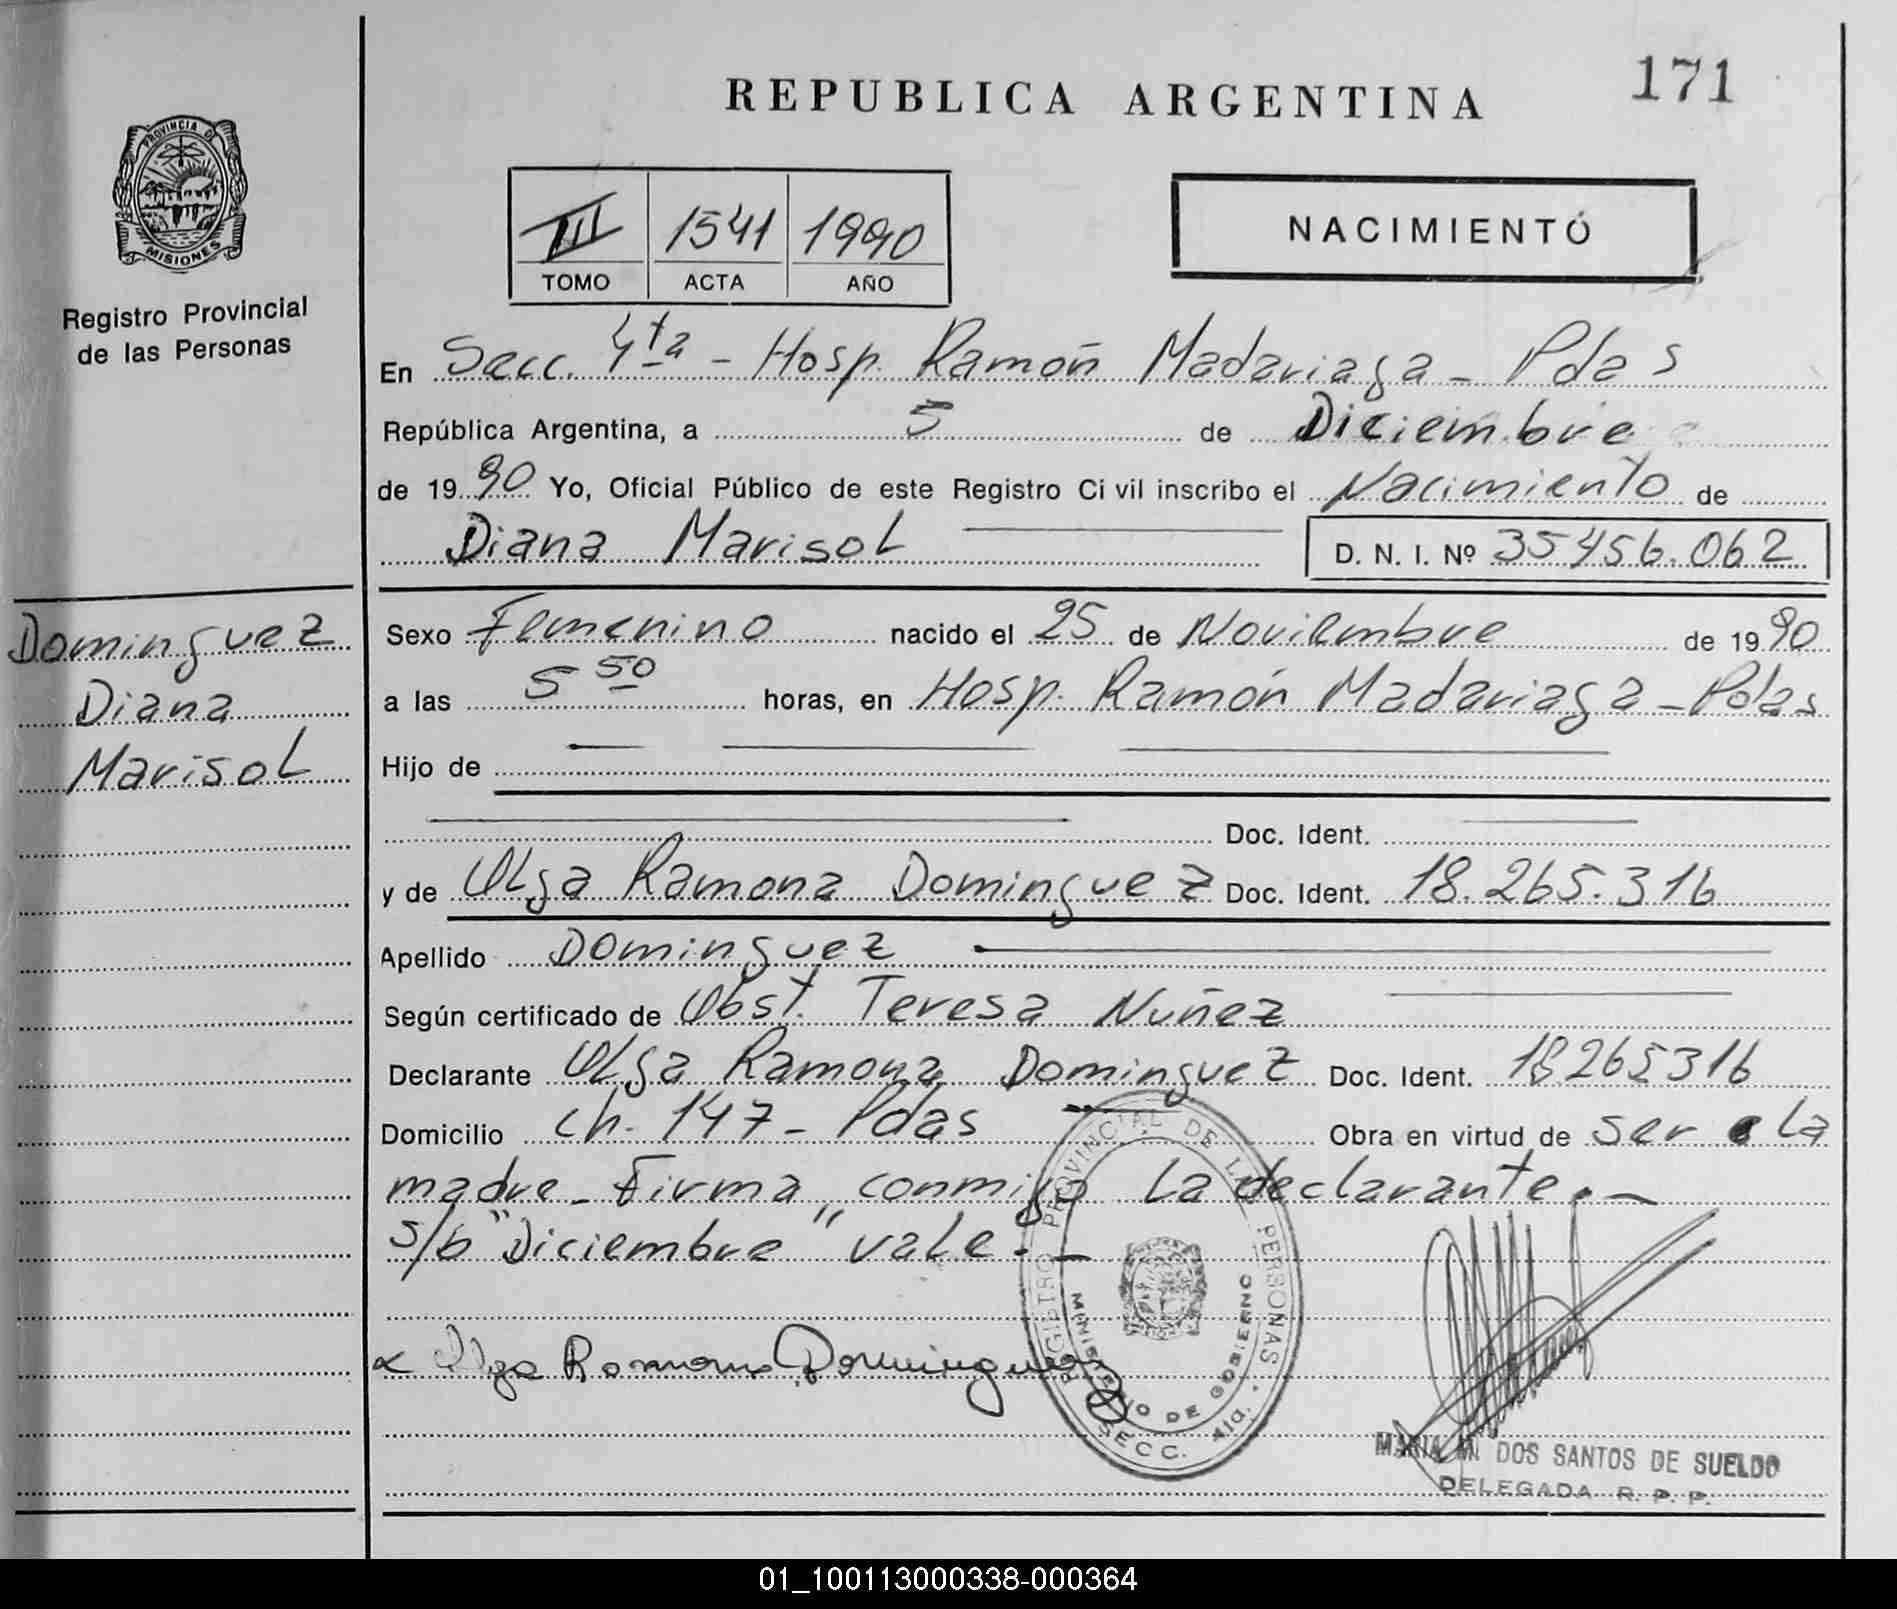 REPUBLICA ARGENTINA
171
PROVINCIA DE
MISIONES
Registro Provincial
de las Personas
III 1541 1990
TOMO ACTA AÑO
NACIMIENTO
En Secc. 4ta - Hosp. Ramón Madariaga - Pdas
República Argentina, a 5 de Diciembre
de 1990 Yo, Oficial Público de este Registro Civil inscribo el Nacimiento de
Diana Marisol D. N. I. Nº 35456.062
Dominguez
Diana
Marisol
Sexo Femenino nacido el 25 de Noviembre de 1990
a las 5 50 horas, en Hosp. Ramón Madariaga - Pdas
Hijo de
Doc. Ident.
y de Olga Ramona Dominguez Doc. Ident. 18.265.316
Apellido Dominguez
Según certificado de Obst. Teresa Nuñez
Declarante Olga Ramona Dominguez Doc. Ident. 18265316
Domicilio ch. 147 - Pdas Obra en virtud de ser la
madre - Firma conmigo la declarante. -
s/b "Diciembre" vale. -
Olga Ramona Dominguez
REGISTRO PROVINCIAL DE LAS PERSONAS
MINISTERIO DE GOBIERNO
SECC. 4ta.
MARIA M. DOS SANTOS DE SUELDO
DELEGADA R. P. P.
01_100113000338-000364